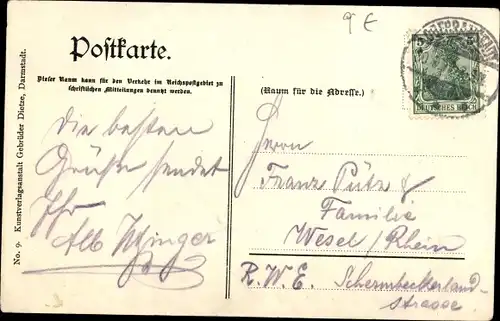 9 E
Postkarte.
Dieser Raum kann für den Verkehr im Reichspostgebiet zu
schriftlichen Mitteilungen benutzt werden.
(Raum für die Adresse.)
5 5
DEUTSCHES REICH
No. 9. Kunstverlagsanstalt Gebrüder Dietze, Darmstadt.
Die besten
Grüße sendet
Ihr
Alb
Herrn
Franz Pütz &
Familie
Wesel/Rhein
R.W.E. Schermbeckerland-
strasse